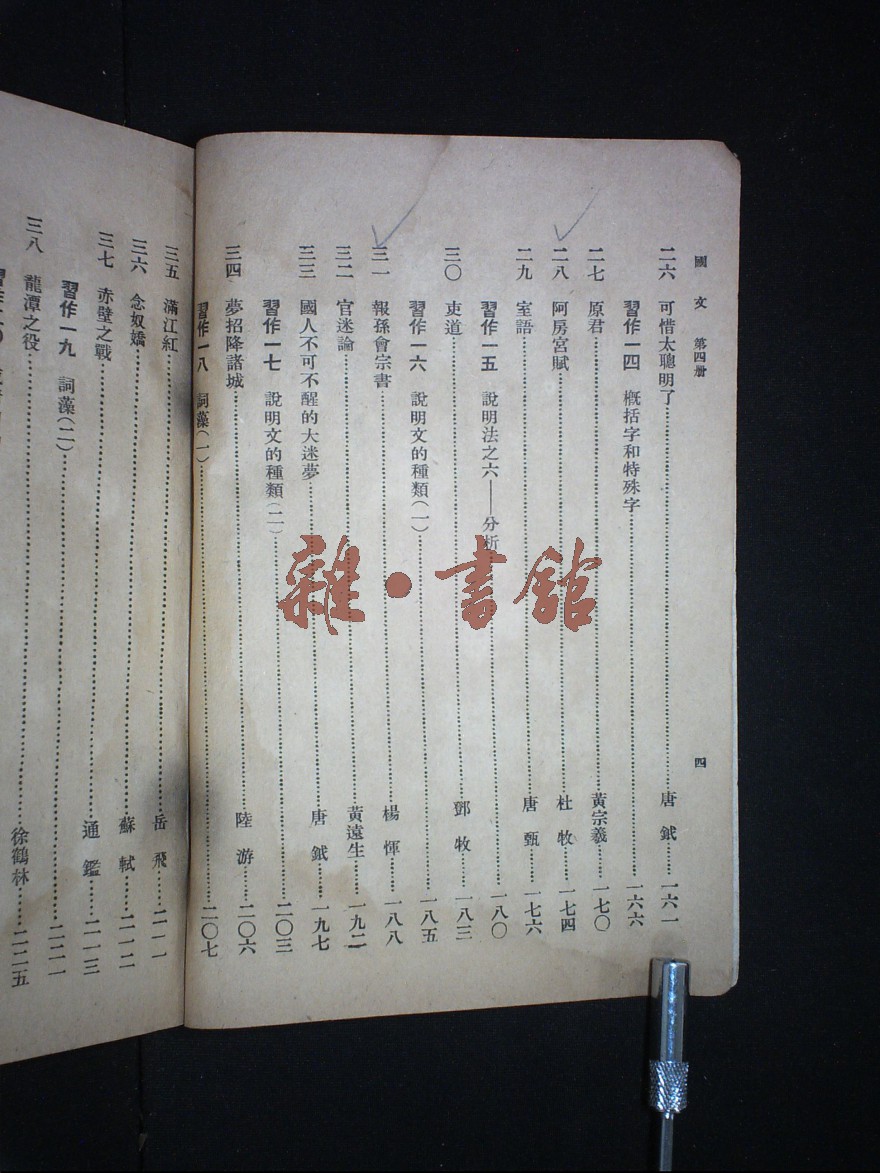 國文 第四册
四
二六 可惜太聰明了……唐鉞……一六一
習作一四 概括字和特殊字……一六六
二七 原君……黃宗羲……一七〇
二八 阿房宮賦……杜牧……一七四
二九 室語……唐甄……一七六
習作一五 說明法之六——分析……一八〇
三〇 吏道……鄧牧……一八三
習作一六 說明文的種類(一)……一八五
三一 報孫會宗書……楊惲……一八八
三二 官迷論……黃遠生……一九二
三三 國人不可不醒的大迷夢……唐鉞……一九七
習作一七 說明文的種類(二)……二〇三
三四 夢招降諸城……陸游……二〇六
習作一八 詞藻(一)……二〇七
三五 滿江紅……岳飛……二一一
三六 念奴嬌……蘇軾……二一二
三七 赤壁之戰……通鑑……二一三
習作一九 詞藻(二)……二二一
三八 龍潭之役……徐鶴林……二二五
雜·書館